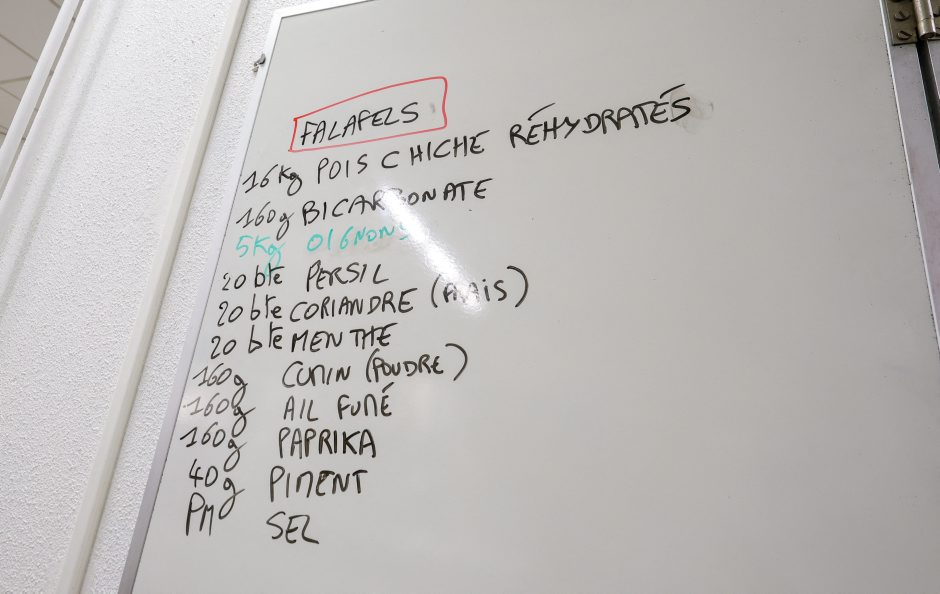 FALAFELS
16Kg POIS CHICHE RÉHYDRATÉS
160g BICARBONATE
5Kg OIGNONS
20 bte PERSIL
20 bte CORIANDRE (FRAIS)
20 bte MENTHE
160g CUMIN (POUDRE)
160g AIL FUMÉ
160g PAPRIKA
40g PIMENT
PM SEL